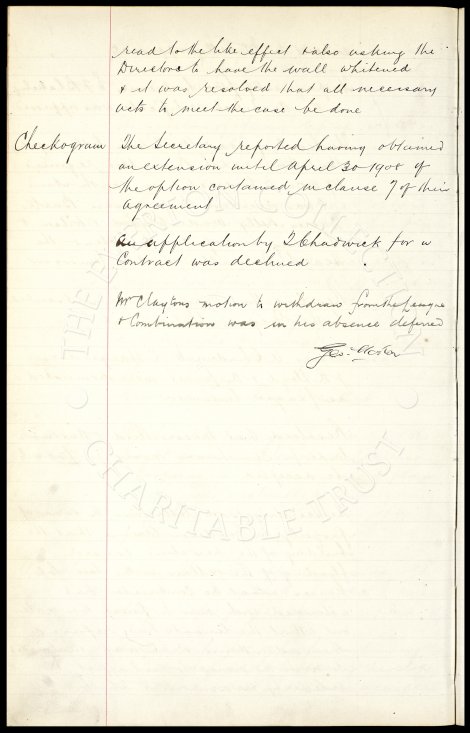 read to the like effect & also asking the
Directors to have the wall whitened
& it was resolved that all necessary
acts to meet the case be done
Checkogram
The Secretary reported having obtained
an extension until April 30 1908 of
the option contained in clause 7 of their
agreement
An application by T Chadwick for a
Contract was declined
Mr Claytons motion to withdraw from the League
& Combination was in his absence deferred
Geo:
THE EVERTON COLLECTION
CHARITABLE TRUST